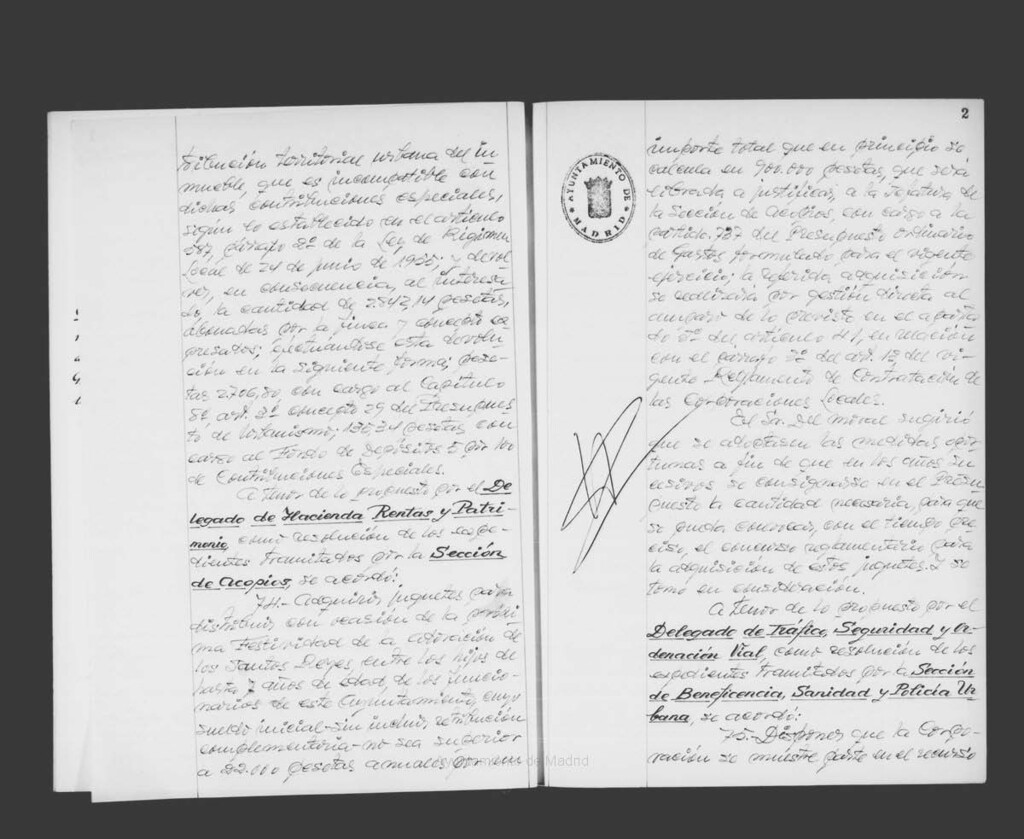 tribución territorial urbana del in
mueble, que es incompatible con
dichas contribuciones especiales,
según lo establecido en el artículo
587, párrafo 2º de la Ley de Régimen
Local de 24 de junio de 1955; y devol
ver, en consecuencia, al interesa
do, la cantidad de 2.842,14 pesetas,
abonadas por la finca y concepto ex
presados; efectuándose esta devolu
ción en la siguiente forma; pese-
tas 2.706,80, con cargo al Capítulo
8º art. 2º concepto 29 del Presupues
to de Urbanismo; 135,34 pesetas con
cargo al Fondo de Depósitos 5 por 100
de Contribuciones Especiales.
A tenor de lo propuesto por el De
legado de Hacienda Rentas y Patri-
monio, como resolución de los expe-
dientes tramitados por la Sección
de Acopios, se acordó:
74.- Adquirir juguetes para
distribuir con ocasión de la próxi
ma Festividad de la adoración de
los Santos Reyes, entre los hijos de
hasta 7 años de edad de los funcio-
narios de este Ayuntamiento, cuyo
sueldo inicial-sin incluir retribución
complementaria-no sea superior
a 22.000 pesetas anuales por un
2
AYUNTAMIENTO DE MADRID
importe total que en principio se
calcula en 900.000 pesetas, que será
librada a justificar, a la Jefatura de
la Sección de Acopios, con cargo a la
partida 737 del Presupuesto Ordinario
de Gastos formulado para el vigente
ejercicio; la referida adquisición
se realizaría por gestión directa al
amparo de lo previsto en el aparta
do 3º del artículo 41, en relación
con el párrafo 2º del art. 12 del vi
gente Reglamento de Contratación de
las Corporaciones Locales.
El Sr. Del Moral sugirió
que se adoptasen las medidas opor
tunas a fin de que en los años su
cesivos se consignase en el Presu
puesto la cantidad necesaria, para que
se pueda convocar, con el tiempo pre
ciso, el concurso reglamentario para
la adquisición de estos juguetes. Y se
tomó en consideración.
A tenor de lo propuesto por el
Delegado de Tráfico, Seguridad y Or-
denación Vial, como resolución de los
expedientes tramitados por la Sección
de Beneficencia, Sanidad y Policía Ur
bana, se acordó:
75.- Disponer que la Corpo-
ración se muestre parte en el recurso
Ayuntamiento de Madrid